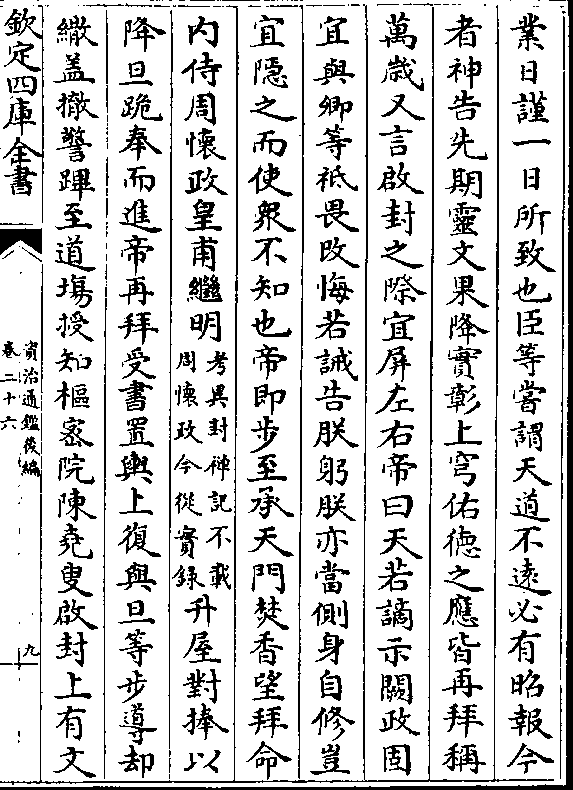 業日謹一日所致也臣等嘗謂天道不遠必有昭報今
者神告先期靈文果降實彰上穹佑徳之應皆再拜稱
萬歳又言啟封之際宜屏左右帝曰天若謫示闕政固
宜與卿等祗畏改悔若誡告朕躬朕亦當側身自修豈
宜隱之而使衆不知也帝即步至承天門焚香望拜命
内侍周懐政皇甫繼明考異封神記不載周懐政今從實錄升屋對捧以
降旦跪奉而進帝再拜受書置輿上復與旦等步導却
繖盖撤警蹕至道塲授知樞宻院陳堯叟啟封上有文
欽定四庫全書
資治通鑑後編
卷二十六
九